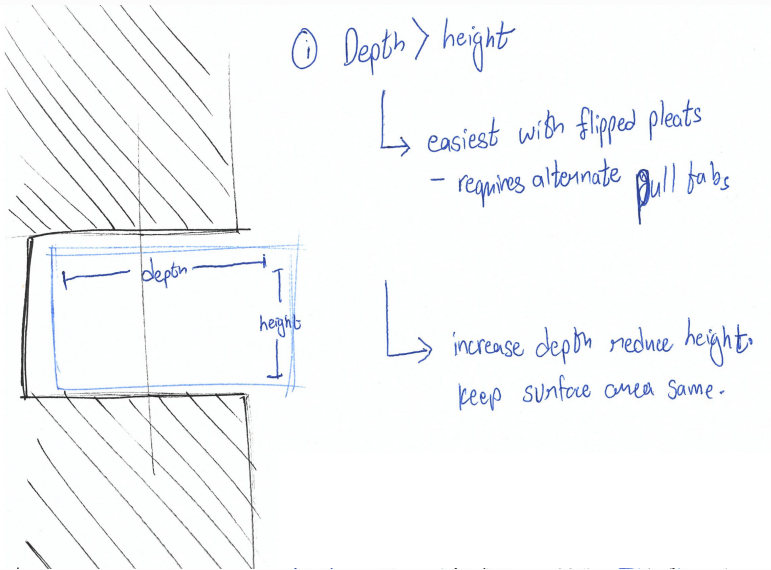 ① Depth > height
easiest with flipped pleats
- requires alternate pull tabs
depth
height
increase depth reduce height.
keep surface area same.